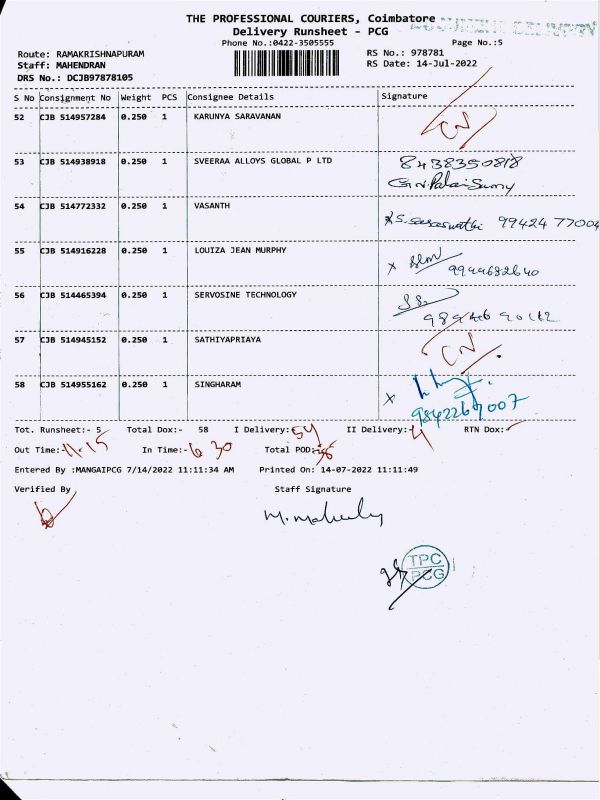 THE PROFESSIONAL COURIERS, Coimbatore
Delivery Runsheet - PCG
Phone No.:0422-3505555
Page No.:5
Route: RAMAKRISHNAPURAM
RS No.: 978781
Staff: MAHENDRAN
RS Date: 14-Jul-2022
DRS No.: DCJB97878105
S No Consignment No Weight PCS Consignee Details Signature
52 CJB 514957284 0.250 1 KARUNYA SARAVANAN CN
53 CJB 514938918 0.250 1 SVEERAA ALLOYS GLOBAL P LTD 8438350818
54 CJB 514772332 0.250 1 VASANTH S. Saraswathi 99424 77004
55 CJB 514916228 0.250 1 LOUIZA JEAN MURPHY x 9944682640
56 CJB 514465394 0.250 1 SERVOSINE TECHNOLOGY
57 CJB 514945152 0.250 1 SATHIYAPRIAYA CN
58 CJB 514955162 0.250 1 SINGHARAM x
Tot. Runsheet:- 5 Total Dox:- 58 I Delivery:- 54 II Delivery:- 4 RTN Dox:-
Out Time:- 11.15 In Time:- 6 30 Total POD:-
Entered By :MANGAIPCG 7/14/2022 11:11:34 AM Printed On: 14-07-2022 11:11:49
Verified By Staff Signature
TPC
PCG